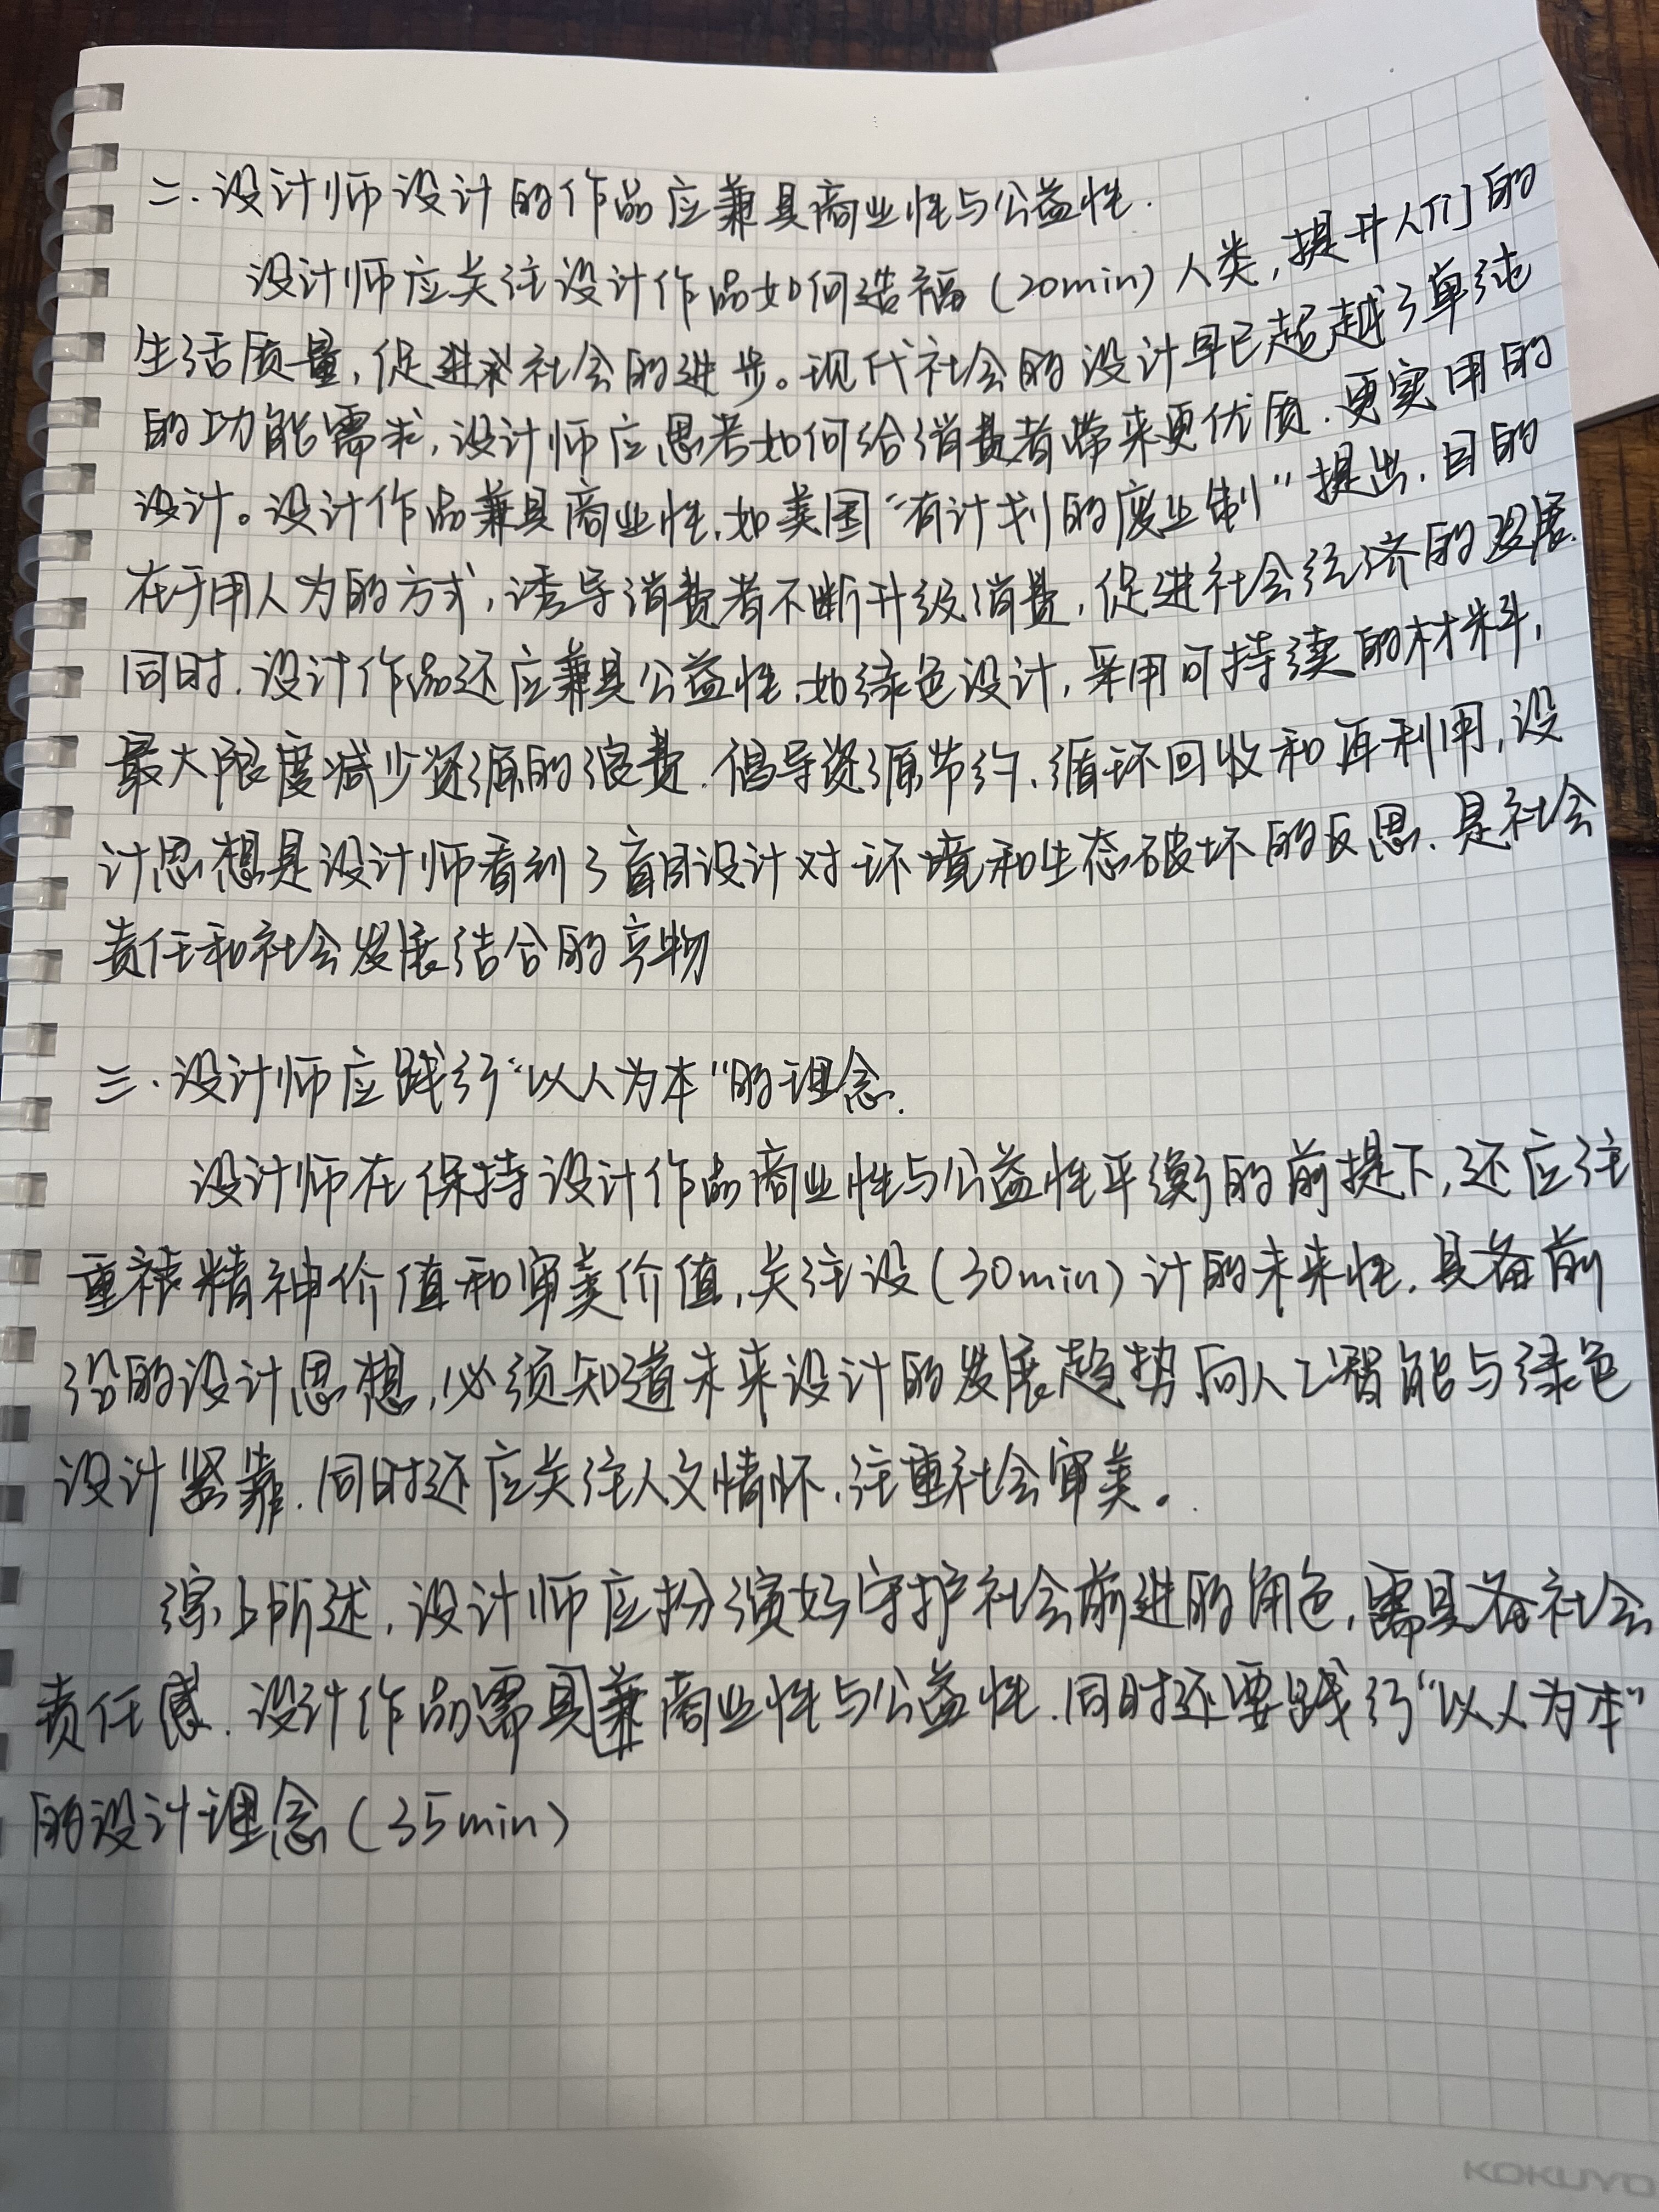 二.设计师设计的作品应兼具商业性与公益性.
设计师应关注设计作品如何造福(20min)人类,提升人们的
生活质量,促进社会的进步。现代社会的设计早已超越了单纯
的功能需求,设计师应思考如何给消费者带来更优质.更实用的
设计。设计作品兼具商业性,如美国“有计划的废止制”提出,目的
在于用人为的方式,诱导消费者不断升级消费,促进社会经济的发展.
同时.设计作品还应兼具公益性.如绿色设计,采用可持续的材料,
最大限度减少资源的浪费.倡导资源节约.循环回收和再利用,设
计思想是设计师看到了盲目设计对环境和生态破坏的反思.是社会
责任和社会发展结合的产物
三.设计师应践行“以人为本”的理念.
设计师在保持设计作品商业性与公益性平衡的前提下,还应注
重精神价值和审美价值,关注设(30min)计的未来性.具备前
沿的设计思想,必须知道未来设计的发展趋势向人工智能与绿色
设计紧靠.同时还应关注人文情怀.注重社会审美。
综上所述,设计师应扮演好守护社会前进的角色,需具备社会
责任感.设计作品需具兼商业性与公益性.同时还要践行“以人为本”
的设计理念(35min)
KOKUYO